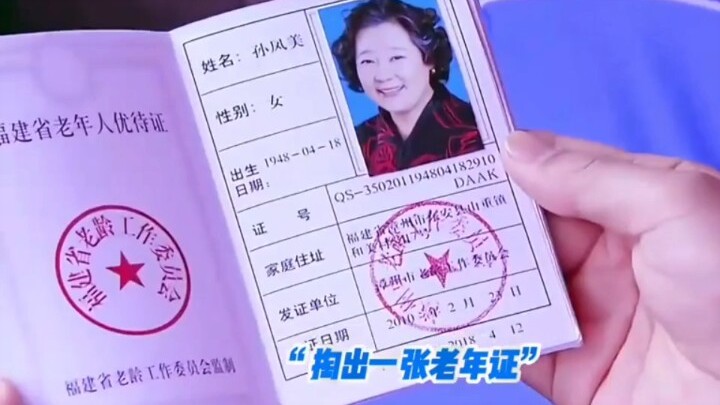 福建省老年人优待证
福建省老龄工作委员会
福建省老龄工作委员会监制
姓名： 孙凤美
性别： 女
出生日期： 1948-04-18
证 号 QS-350201194804182910
DAAK
家庭住址
福建省
发证单位
工作委员会
证日期 2010 年 2 月
2018 4 12
“掏出一张老年证”